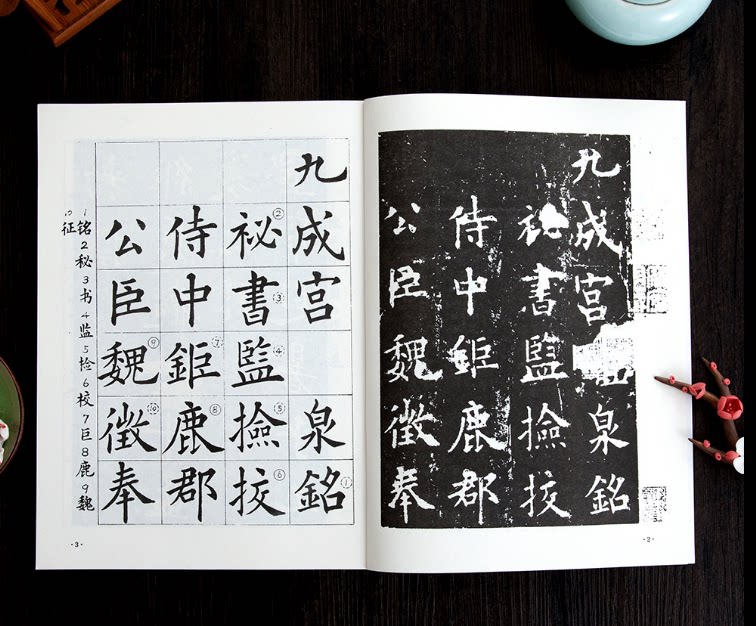 九成宮泉銘
祕書監撿挍
侍中鉅鹿郡
公臣魏徵奉
·2·
九成宮泉銘①
祕②書③監④撿⑤挍⑥
侍中鉅⑦鹿⑧郡
公臣魏⑨徵⑩奉
1铭2秘3书4监5捡6校7巨8鹿9魏
10征
·3·